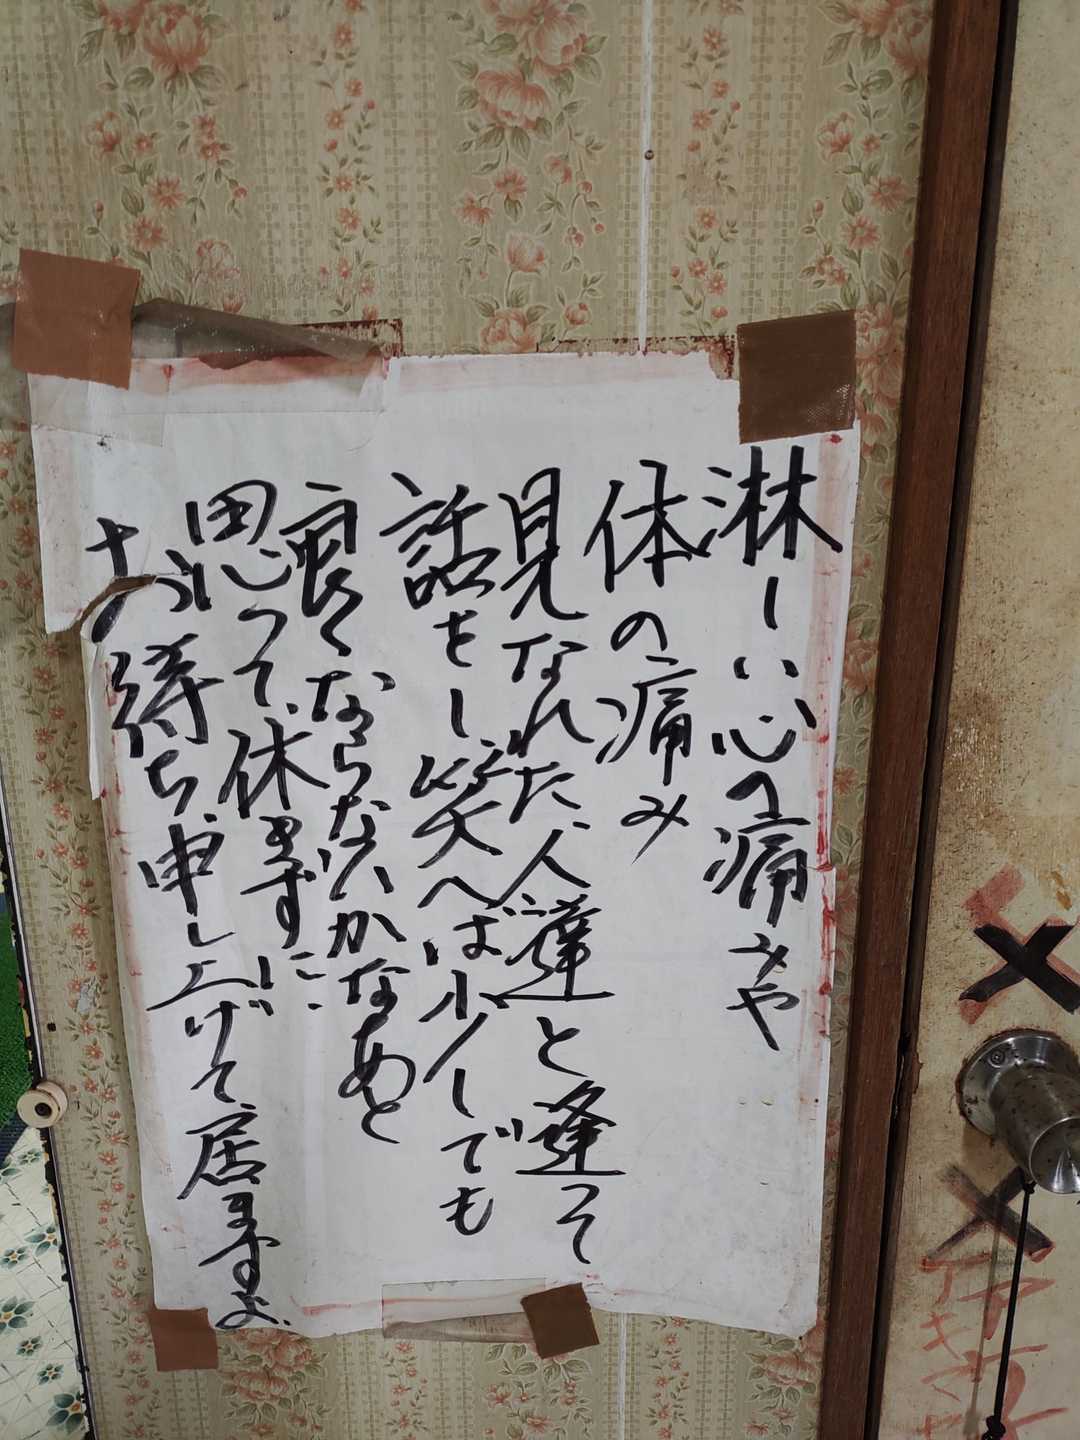 淋しい心の痛みや
体の痛み
見なれた人達と逢って
話をし笑へば少しでも
良くならないかなあと
思って休まずに
お待ち申し上げて居ますよ